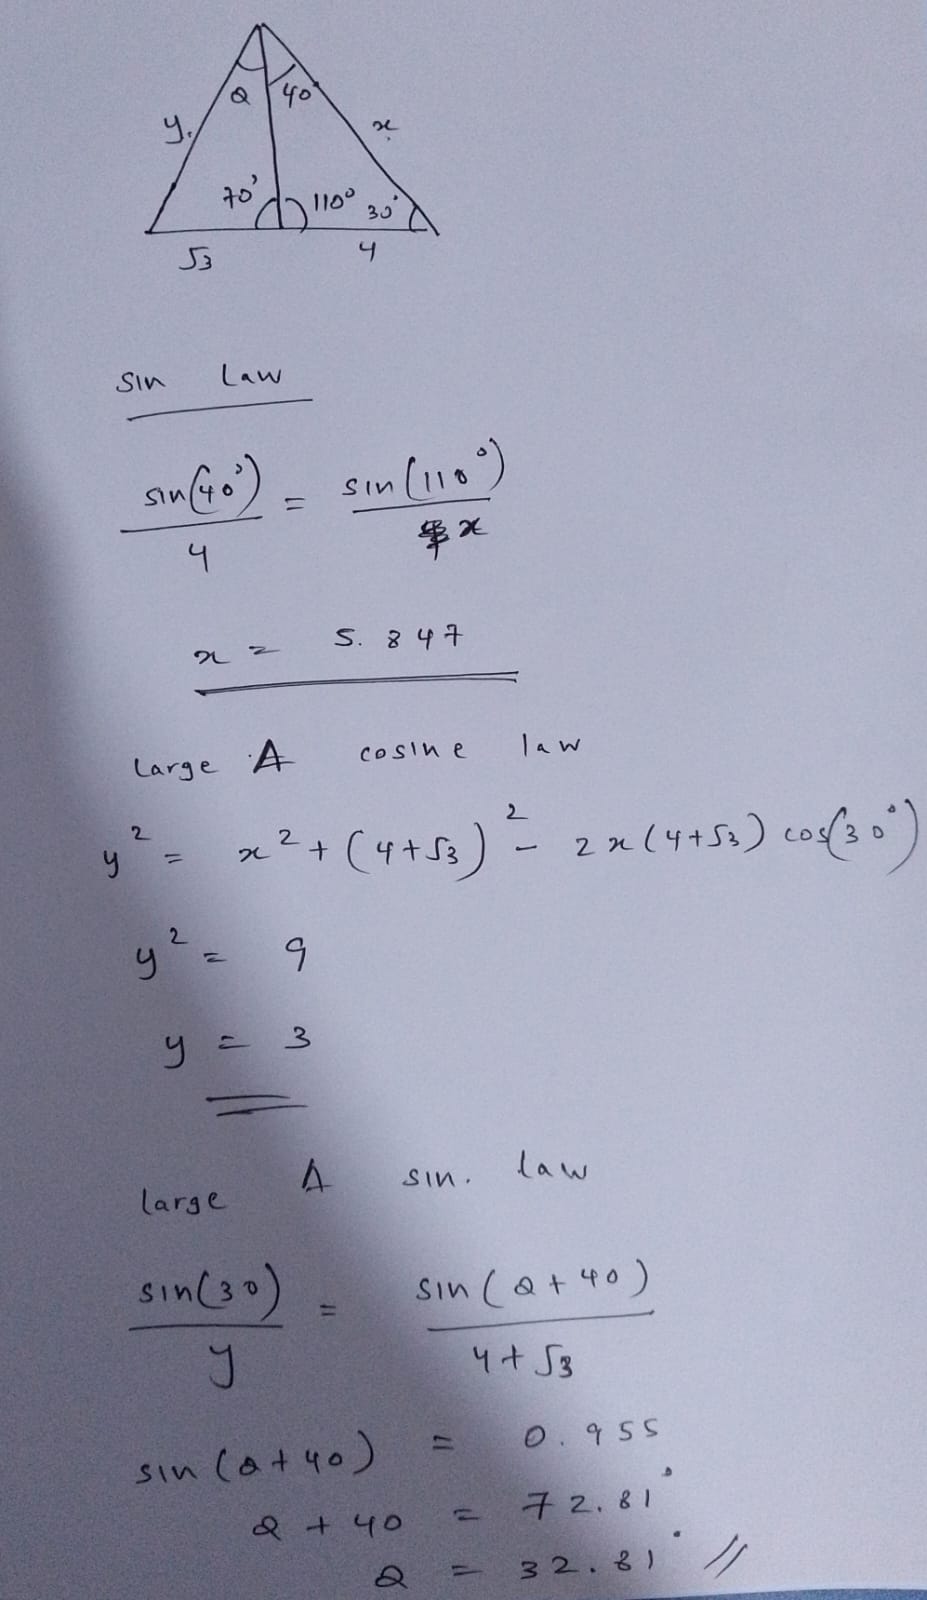 Q 40
y. x
70° 110° 30°
√3 4
sin law
sin(40°)/4 = sin(110°)/x
x = 5.847
large Δ cosine law
y² = x² + (4+√3)² - 2x(4+√3) cos(30°)
y² = 9
y = 3
large Δ sin. law
sin(30)/y = sin(Q+40)/4+√3
sin(Q+40) = 0.955
Q + 40 = 72.81°
Q = 32.81° //